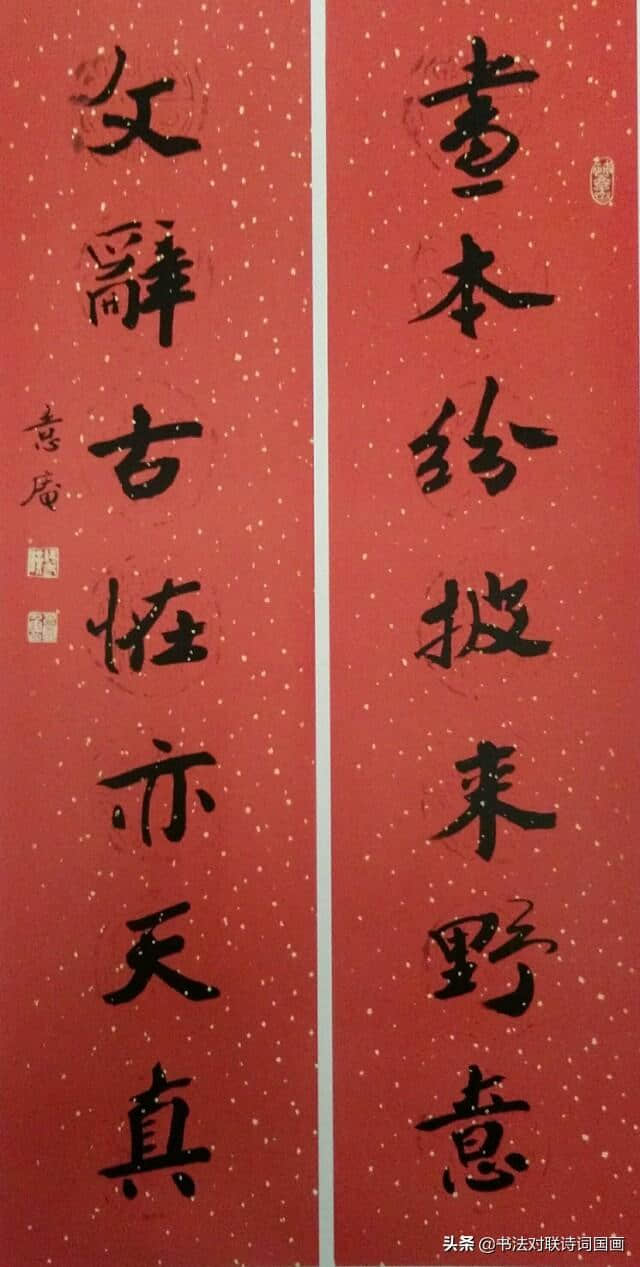 畫本紛披来野意
文辭古怪亦天真
意庵
头条 @书法对联诗词国画